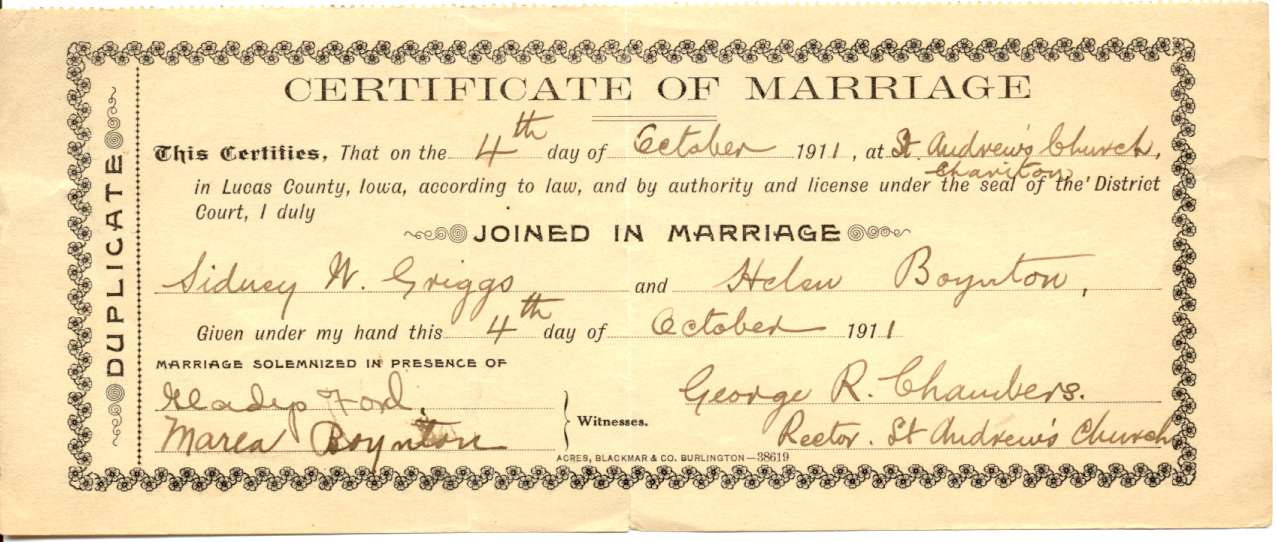 CERTIFICATE OF MARRIAGE
DUPLICATE
This Certifies, That on the 4th day of October 1911, at St. Andrew's Church,
Chariton
in Lucas County, Iowa, according to law, and by authority and license under the seal of the District
Court, I duly
JOINED IN MARRIAGE
Sidney W. Griggs and Helen Boynton,
Given under my hand this 4th day of October 1911
MARRIAGE SOLEMNIZED IN PRESENCE OF
Gladys Ford,
George R. Chambers.
Witnesses.
Marea Boynton
Rector. St Andrew's Church
ACRES, BLACKMAR & CO. BURLINGTON—38619